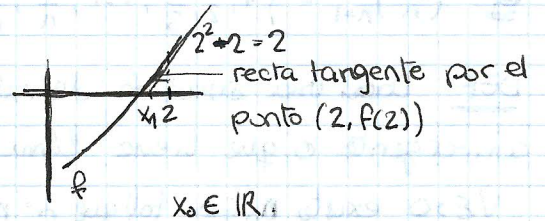 2²-2=2
recta tangente por el
x₁ 2
punto (2, f(2))
f
x₀ ∈ ℝ.